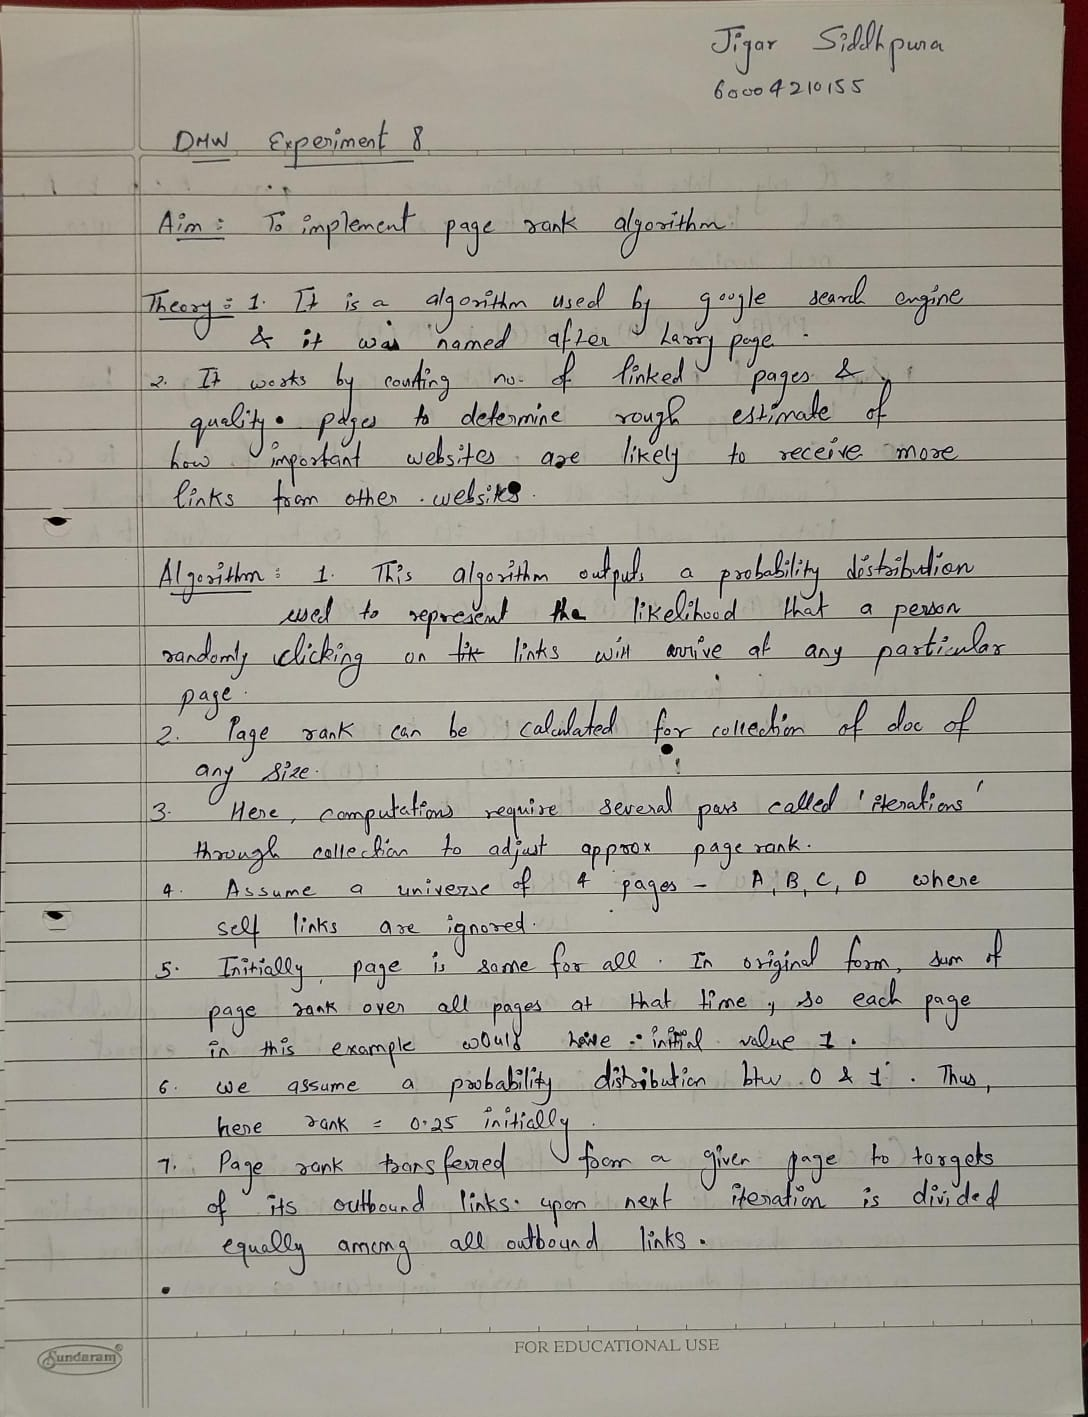 Jigar Siddhpura
60004210155
DMW Experiment 8
Aim : To implement page rank algorithm.
Theory : 1. It is a algorithm used by google search engine
& it was named after Larry page .
2. It works by counting no. of linked pages &
quality . pages to determine rough estimate of
how important websites are likely to receive more
links from other websites .
Algorithm : 1. This algorithm outputs a probability distribution
used to represent the likelihood that a person
randomly clicking on links will arrive at any particular
page .
2. Page rank can be calculated for collection of doc of
any size .
3. Here, computations require several pass called 'iterations'
through collection to adjust approx page rank .
4. Assume a universe of 4 pages - A, B, C, D where
self links are ignored .
5. Initially, page is same for all . In original form, sum of
page rank over all pages at that time , so each page
in this example would have initial value 1 .
6. we assume a probability distribution btw 0 & 1 . Thus,
here rank = 0.25 initially .
7. Page rank transferred from a given page to targets
of its outbound links . upon next iteration is divided
equally among all outbound links .
Sundaram
FOR EDUCATIONAL USE